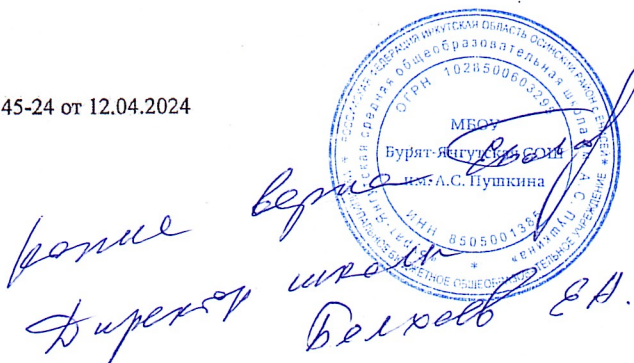 45-24 от 12.04.2024
РОССИЙСКАЯ ФЕДЕРАЦИЯ ИРКУТСКАЯ ОБЛАСТЬ ОСИНСКИЙ РАЙОН С. ЕНИСЕЙ
МУНИЦИПАЛЬНОЕ БЮДЖЕТНОЕ ОБЩЕОБРАЗОВАТЕЛЬНОЕ УЧРЕЖДЕНИЕ
средняя общеобразовательная школа
А.С. Пушкина»
ОГРН 102850060329
МБОУ
Бурят-Янгутская СОШ
им. А.С. Пушкина
ИНН 850500138
копие верна
Директор школы
Белхоев Е.А.